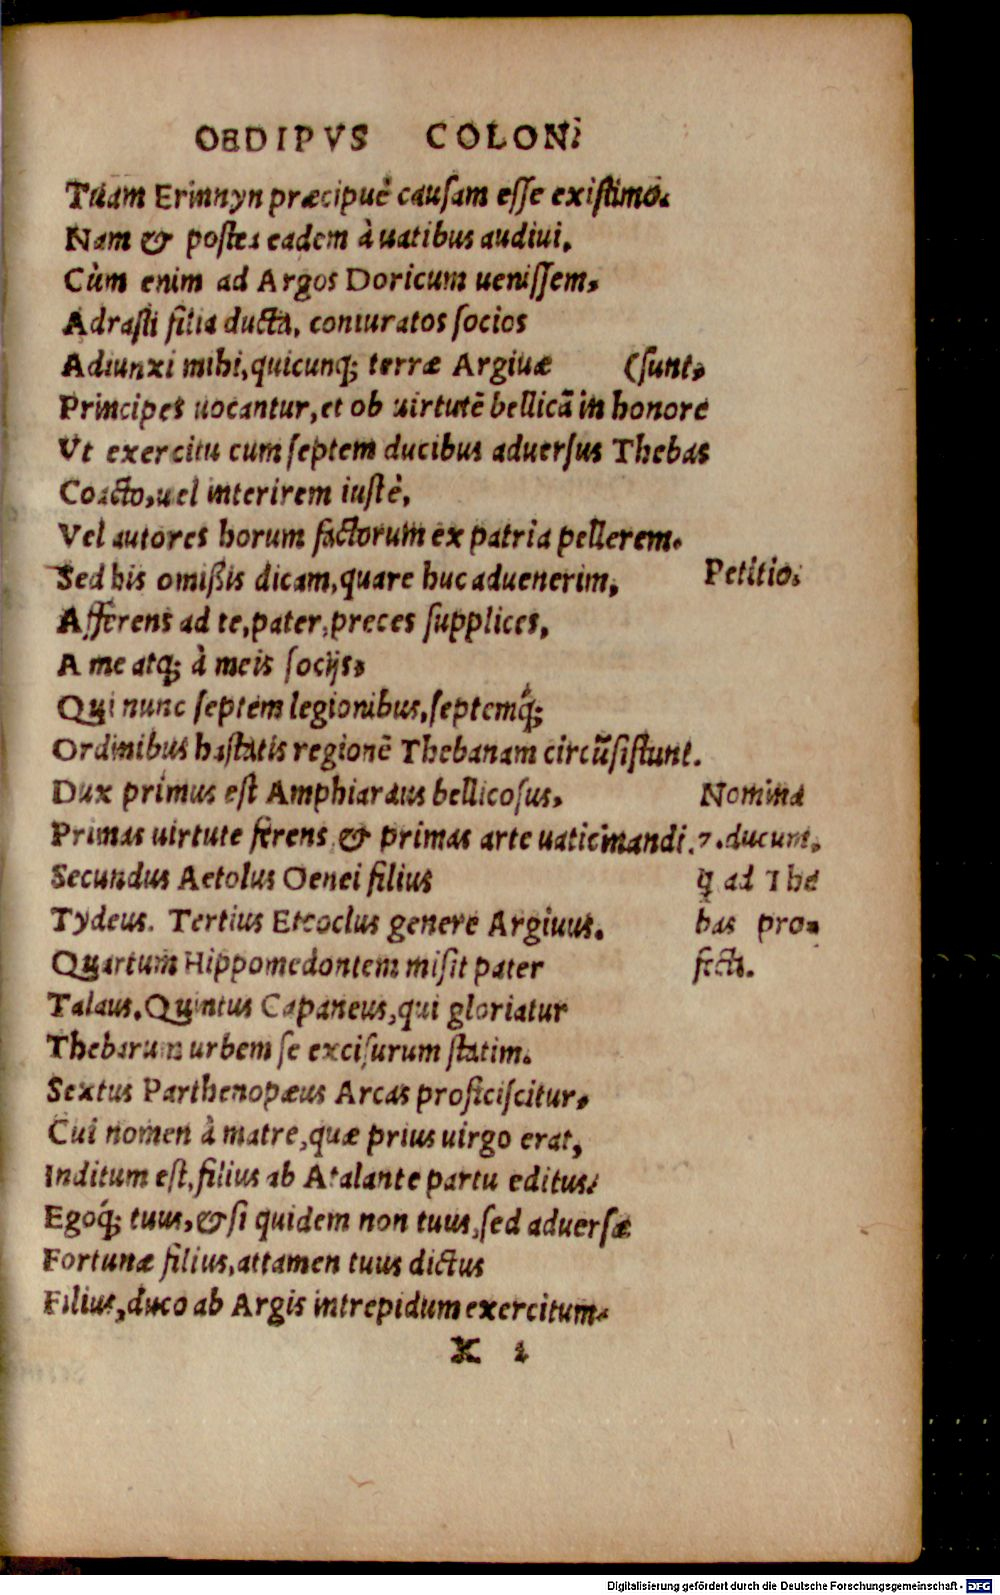 OEDIPVS COLONI
Tuam Erinnyn præcipuè causam esse existimo.
Nam & postea eadem à uatibus audiui.
Cùm enim ad Argos Doricum uenissem,
Adrasti filia ducta, coniuratos socios
Adiunxi mihi, quicunq; terræ Argiuæ (sunt,
Principes uocantur, et ob uirtutē bellicā in honore
Vt exercitu cum septem ducibus aduersus Thebas
Coacto, uel interirem iustè,
Vel autores horum factorum ex patria pellerem.
Sed his omißis dicam, quare huc aduenerim,
Petitio.
Afferens ad te, pater, preces supplices,
A me atq; à meis socijs,
Qui nunc septem legionibus, septemq́;
Ordinibus hastatis regionē Thebanam circūsistunt.
Dux primus est Amphiaraus bellicosus,
Primas uirtute ferens & primas arte uaticinandi.
Secundus Aetolus Oenei filius
Tydeus. Tertius Eteoclus genere Argiuus.
Quartum Hippomedontem misit pater
Nomina
7. ducum,
q̃ ad The
bas pro-
fecti.
Talaus. Quintus Capaneus, qui gloriatur
Thebarum urbem se excisurum statim.
Sextus Parthenopæus Arcas proficiscitur,
Cui nomen à matre, quæ prius uirgo erat,
Inditum est, filius ab Atalante partu editus.
Egoq́; tuus, & si quidem non tuus, sed aduersæ
Fortunæ filius, attamen tuus dictus
Filius, duco ab Argis intrepidum exercitum.
X
Digitalisierung gefördert durch die Deutsche Forschungsgemeinschaft - DFG